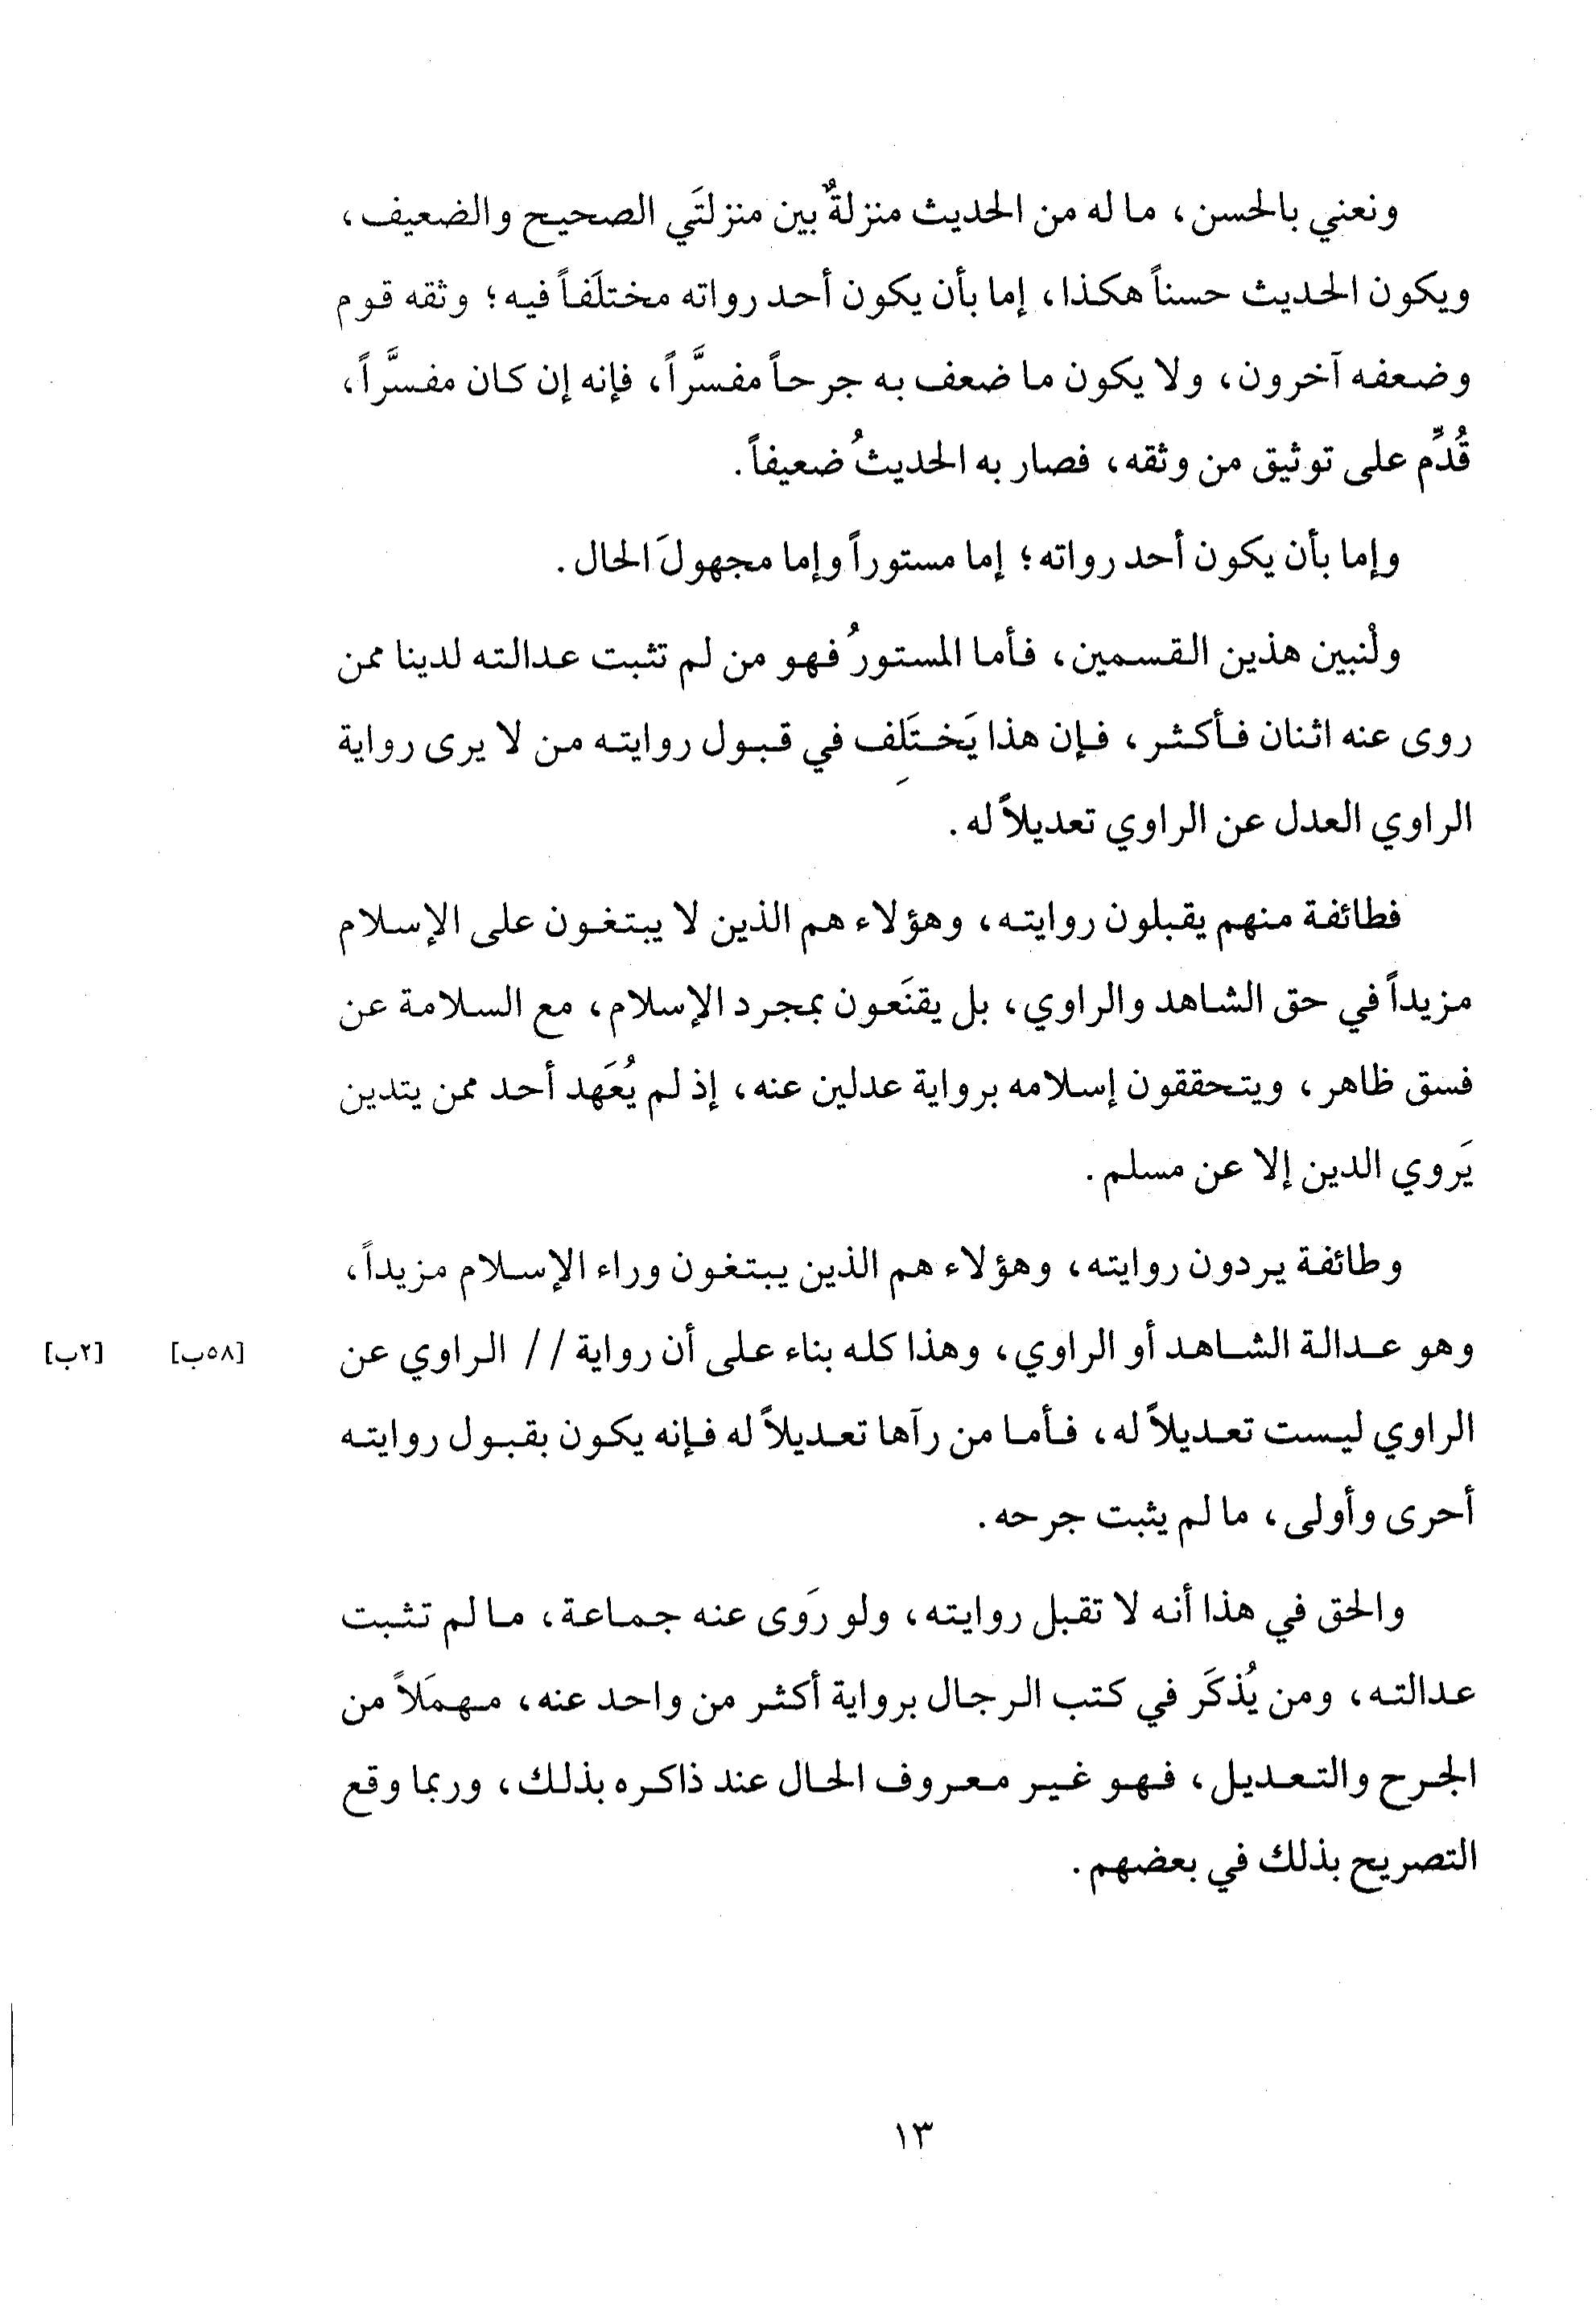 ونعني بالحسن، ما له من الحديث منزلةٌ بين منزلتَي الصحيح والضعيف،
ويكون الحديث حسناً هكذا، إما بأن يكون أحد رواته مختلَفاً فيه؛ وثقه قوم
وضعفه آخرون، ولا يكون ما ضعف به جرحاً مفسَّراً، فإنه إن كان مفسَّراً،
قُدِّم على توثيق من وثقه، فصار به الحديثُ ضعيفاً.
وإما بأن يكون أحد رواته؛ إما مستوراً وإما مجهولَ الحال.
ولْنبين هذين القسمين، فأما المستورُ فهو من لم تثبت عدالته لدينا ممن
روى عنه اثنان فأكثر، فإن هذا يَختَلِف في قبول روايته من لا يرى رواية
الراوي العدل عن الراوي تعديلاً له.
فطائفة منهم يقبلون روايته، وهؤلاء هم الذين لا يبتغون على الإسلام
مزيداً في حق الشاهد والراوي، بل يقنَعون بمجرد الإسلام، مع السلامة عن
فسق ظاهر، ويتحققون إسلامه برواية عدلين عنه، إذ لم يُعَهد أحد ممن يتدين
يَروي الدين إلا عن مسلم.
وطائفة يردون روايته، وهؤلاء هم الذين يبتغون وراء الإسلام مزيداً،
وهو عدالة الشاهد أو الراوي، وهذا كله بناء على أن رواية // الراوي عن [٥٨ب] [٢ب]
الراوي ليست تعديلاً له، فأما من رآها تعديلاً له فإنه يكون بقبول روايته
أحرى وأولى، ما لم يثبت جرحه.
والحق في هذا أنه لا تقبل روايته، ولو روَى عنه جماعة، ما لم تثبت
عدالته، ومن يُذكَر في كتب الرجال برواية أكثر من واحد عنه، مهمَلاً من
الجرح والتعديل، فهو غير معروف الحال عند ذاكره بذلك، وربما وقع
التصريح بذلك في بعضهم.
١٣